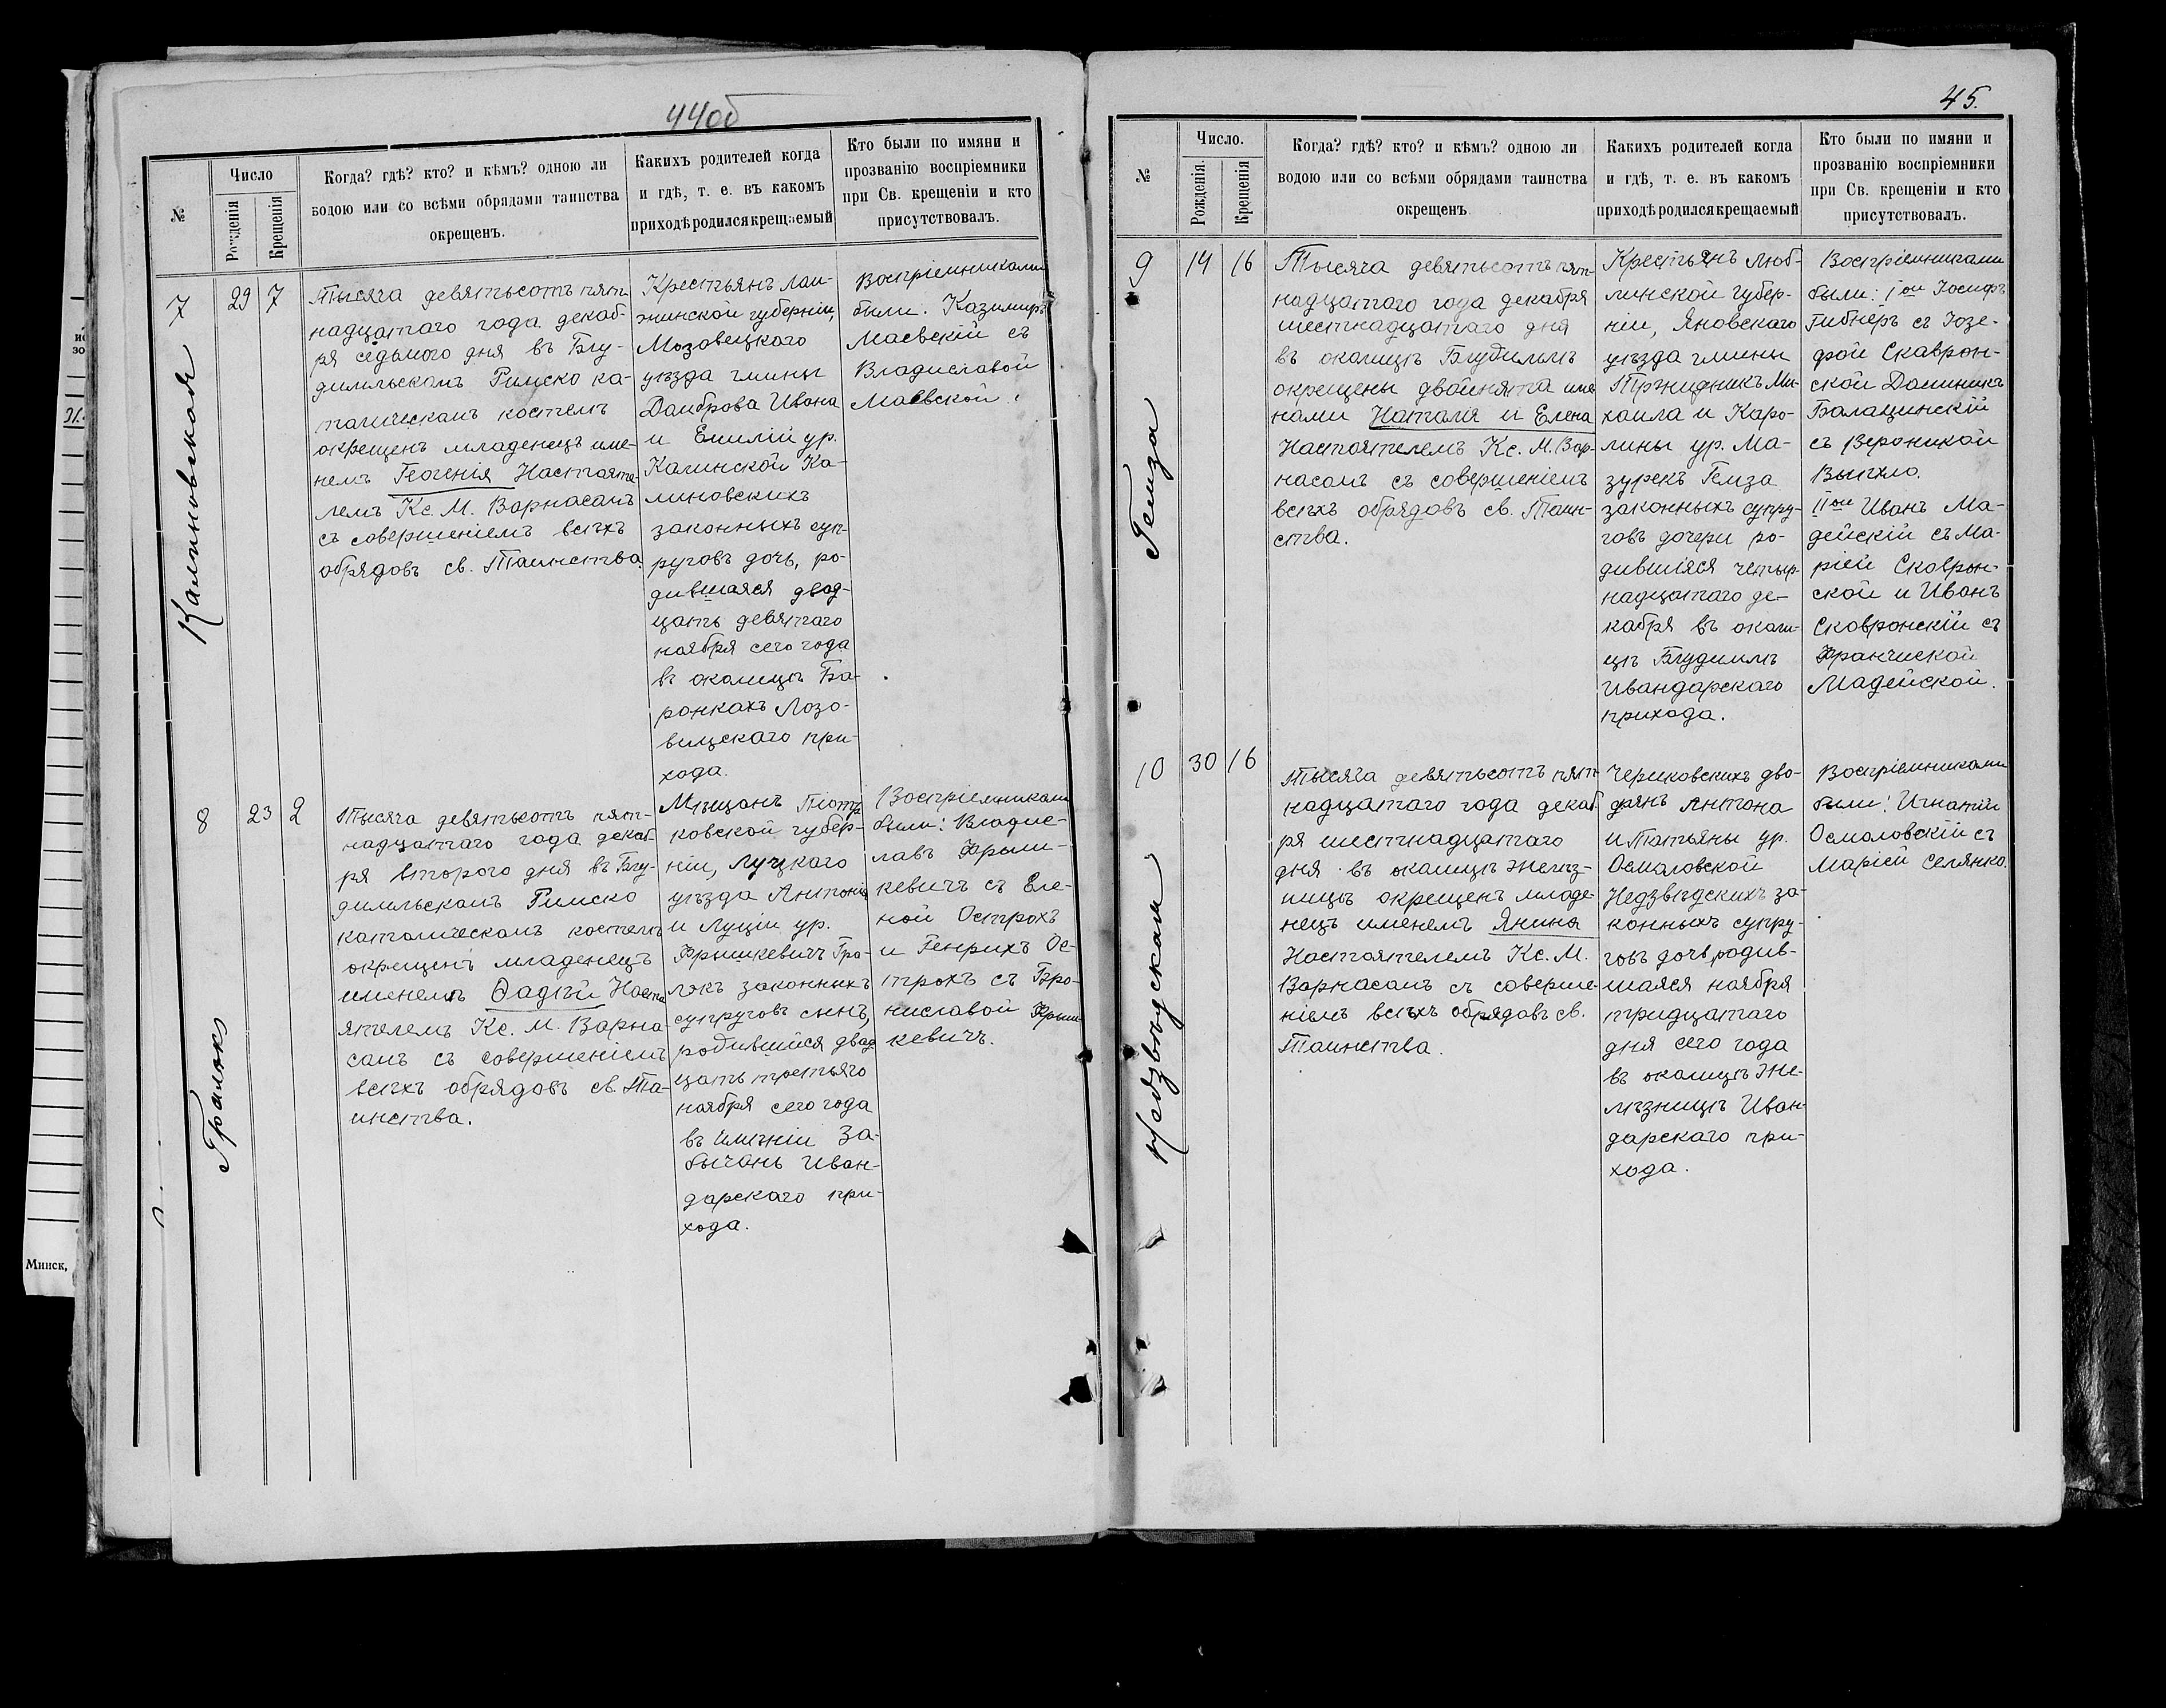 44об
№
Число
Рожденія
Крещенія
Когда? гдѣ? кто? и кѣмъ? одною ли
водою или со всѣми обрядами таинства
окрещенъ.
Какихъ родителей когда
и гдѣ, т. е. въ какомъ
приходѣ родился крещаемый
Кто были по имяни и
прозванію воспріемники
при Св. крещеніи и кто
присутствовалъ.
7
Калиновская
29
7
Тысяча девятьсотъ пят-
надцатаго года декаб-
ря седьмого дня въ Блу-
димльскомъ Римско ка-
толическомъ костелѣ
окрещенъ младенецъ име-
немъ Настояте-
лемъ Кс. М. Варнасомъ
съ совершеніемъ всѣхъ
обрядовъ св. Таинства.
Крестьянъ Лом-
жинской губерніи,
Мазовецкаго
уѣзда гмины
Домброва Ивана
и Емиліи ур.
Калинской Ка-
линовскихъ
законныхъ суп-
руговъ дочь, ро-
дившаяся двад-
цать девятаго
ноября сего года
въ околицѣ Ба-
ронкахъ Лозо-
вицскаго при-
хода.
Воспріемниками
были: Казимиръ
Маевскій съ
Владиславой
Маевской.
8
Гралокъ
23
2
Тысяча девятьсотъ пят-
надцатаго года декаб-
ря второго дня въ Блу-
димльскомъ Римско
католическомъ костелѣ
окрещенъ младенецъ
именемъ Ѳадѣй Насто-
ятелемъ Кс. М. Варна-
сомъ съ совершеніемъ
всѣхъ обрядовъ св. Та-
инства.
Мѣщанъ Піотр-
ковской губер-
ніи, Луцкаго
уѣзда Антона
и Луціи ур.
Фрышкевичъ Гра-
локъ законныхъ
супруговъ сынъ,
родившійся двад-
цать третьяго
ноября сего года
въ имѣніи За-
бычань Иван-
дарскаго при-
хода.
Воспріемниками
были: Владис-
лавъ
кевичъ съ Еле-
ной Острохъ
и Генрихъ Ос-
трохъ съ Бро-
ниславой
кевичъ.
45.
№
Число.
Рожденія.
Крещенія
Когда? гдѣ? кто? и кѣмъ? одною ли
водою или со всѣми обрядами таинства
окрещенъ
Какихъ родителей когда
и гдѣ, т. е. въ какомъ
приходѣ родился крещаемый
Кто были по имяни и
прозванію воспріемники
при Св. крещеніи и кто
присутствовалъ.
9
Гемза
14
16
Тысяча девятьсотъ пят-
надцатаго года декабря
шестнадцатаго дня
въ околицѣ Блудимлѣ
окрещены двойнята име-
нами Наталія и Елена
Настоятелемъ Кс. М. Вар-
насомъ съ совершеніемъ
всѣхъ обрядовъ св. Таин-
ства.
Крестьянъ Люб-
линской губер-
ніи, Яновскаго
уѣзда гмины
Тржидникъ Ми-
хаила и Каро-
лины ур. Ма-
зурекъ Гемза
законныхъ супру-
говъ дочери ро-
дившіяся четыр-
надцатаго де-
кабря въ околи-
цѣ Блудимлѣ
Ивандарскаго
прихода.
Воспріемниками
были: Iой Іосифъ
Гибнеръ съ Юзе-
фой Скаврон-
ской Доминикъ
Балацинскій
съ Вероникой
Выгхло.
IIой Иванъ Ма-
дейскій съ Ма-
ріей Скаврон-
ской и Иванъ
Скавронскій съ
Франчиской
Мадейской.
10
Недзвѣдская
30
16
Тысяча девятьсотъ пят-
надцатаго года декаб-
ря шестнадцатаго
дня въ околицѣ Желѣз-
ницѣ окрещенъ младе-
нецъ именемъ Янина
Настоятелемъ Кс. М.
Варнасомъ съ соверше-
ніемъ всѣхъ обрядовъ св.
Таинства.
Чериковскихъ дво-
рянъ Антона
и Татьяны ур.
Осмоловской
Недзвѣдскихъ за-
конныхъ супру-
говъ дочь родив-
шаяся ноября
тридцатаго
дня сего года
въ околицѣ Же-
лѣзницѣ Иван-
дарскаго при-
хода.
Воспріемниками
были: Игнатій
Осмоловскій съ
Маріей Селянко.
Минск,